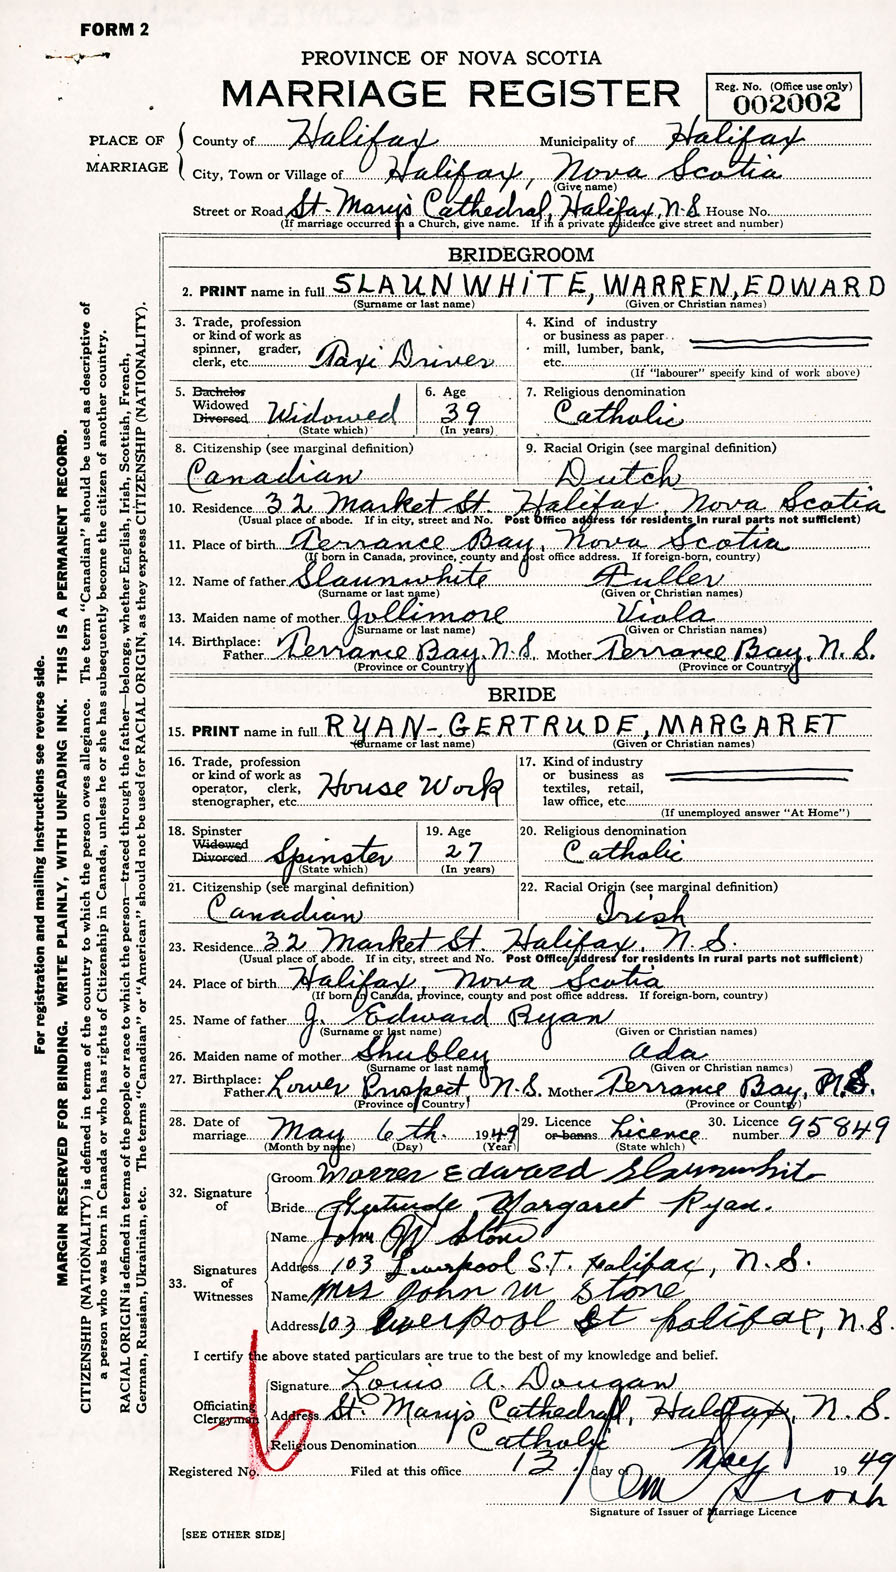 FORM 2
PROVINCE OF NOVA SCOTIA
MARRIAGE REGISTER
Reg. No. (Office use only)
002002
PLACE OF MARRIAGE
County of Halifax Municipality of Halifax
City, Town or Village of Halifax, Nova Scotia
(Give name)
Street or Road St. Mary's Cathedral, Halifax, N.S. House No.
(If marriage occurred in a Church, give name. If in a private residence give street and number)
BRIDEGROOM
2. PRINT name in full SLAUNWHITE, WARREN, EDWARD
(Surname or last name) (Given or Christian names)
3. Trade, profession or kind of work as spinner, grader, clerk, etc. Taxi Driver
4. Kind of industry or business as paper mill, lumber, bank, etc.
(If "labourer" specify kind of work above)
5. Bachelor Widowed Divorced Widowed
(State which)
6. Age 39
(In years)
7. Religious denomination Catholic
8. Citizenship (see marginal definition) Canadian
9. Racial Origin (see marginal definition) Dutch
10. Residence 32 Market St. Halifax, Nova Scotia
(Usual place of abode. If in city, street and No. Post Office address for residents in rural parts not sufficient)
11. Place of birth Terrance Bay, Nova Scotia
(If born in Canada, province, county and post office address. If foreign-born, country)
12. Name of father Slaunwhite Fuller
(Surname or last name) (Given or Christian names)
13. Maiden name of mother Jollimore Viola
(Surname or last name) (Given or Christian names)
14. Birthplace: Father Terrance Bay, N.S. Mother Terrance Bay, N.S.
(Province or Country) (Province or Country)
BRIDE
15. PRINT name in full RYAN-GERTRUDE, MARGARET
(Surname or last name) (Given or Christian names)
16. Trade, profession or kind of work as operator, clerk, stenographer, etc. House Work
17. Kind of industry or business as textiles, retail, law office, etc.
(If unemployed answer "At Home")
18. Spinster Widowed Divorced Spinster
(State which)
19. Age 27
(In years)
20. Religious denomination Catholic
21. Citizenship (see marginal definition) Canadian
22. Racial Origin (see marginal definition) Irish
23. Residence 32 Market St. Halifax, N.S.
(Usual place of abode. If in city, street and No. Post Office address for residents in rural parts not sufficient)
24. Place of birth Halifax, Nova Scotia
(If born in Canada, province, county and post office address. If foreign-born, country)
25. Name of father J. Edward Ryan
(Surname or last name) (Given or Christian names)
26. Maiden name of mother Shubley Ada
(Surname or last name) (Given or Christian names)
27. Birthplace: Father Lower Prospect, N.S. Mother Terrance Bay, N.S.
(Province or Country) (Province or Country)
28. Date of marriage May 6th. 1949
(Month by name) (Day) (Year)
29. Licence or banns Licence
(State which)
30. Licence number 95849
32. Signature of
Groom Warren Edward Slaunwhite
Bride Gertrude Margaret Ryan.
33. Signatures of Witnesses
Name John W Stone
Address 103 Liverpool S.T. Halifax, N.S.
Name Mrs John M Stone
Address 103 Liverpool St Halifax, N.S.
I certify the above stated particulars are true to the best of my knowledge and belief.
Officiating Clergyman
Signature Louis A. Dougan
Address St. Mary's Cathedral, Halifax, N.S.
Religious Denomination Catholic
Registered No. Filed at this office 13 day of May 1949
Signature of Issuer of Marriage Licence
[SEE OTHER SIDE]
For registration and mailing instructions see reverse side.
MARGIN RESERVED FOR BINDING. WRITE PLAINLY, WITH UNFADING INK. THIS IS A PERMANENT RECORD.
CITIZENSHIP (NATIONALITY) is defined in terms of the country to which the person owes allegiance. The term "Canadian" should be used as descriptive of
a person who was born in Canada or who has rights of Citizenship in Canada, unless he or she has subsequently become the citizen of another country.
RACIAL ORIGIN is defined in terms of the people or race to which the person—traced through the father—belongs, whether English, Irish, Scottish, French,
German, Russian, Ukrainian, etc. The terms "Canadian" or "American" should not be used for RACIAL ORIGIN, as they express CITIZENSHIP (NATIONALITY).